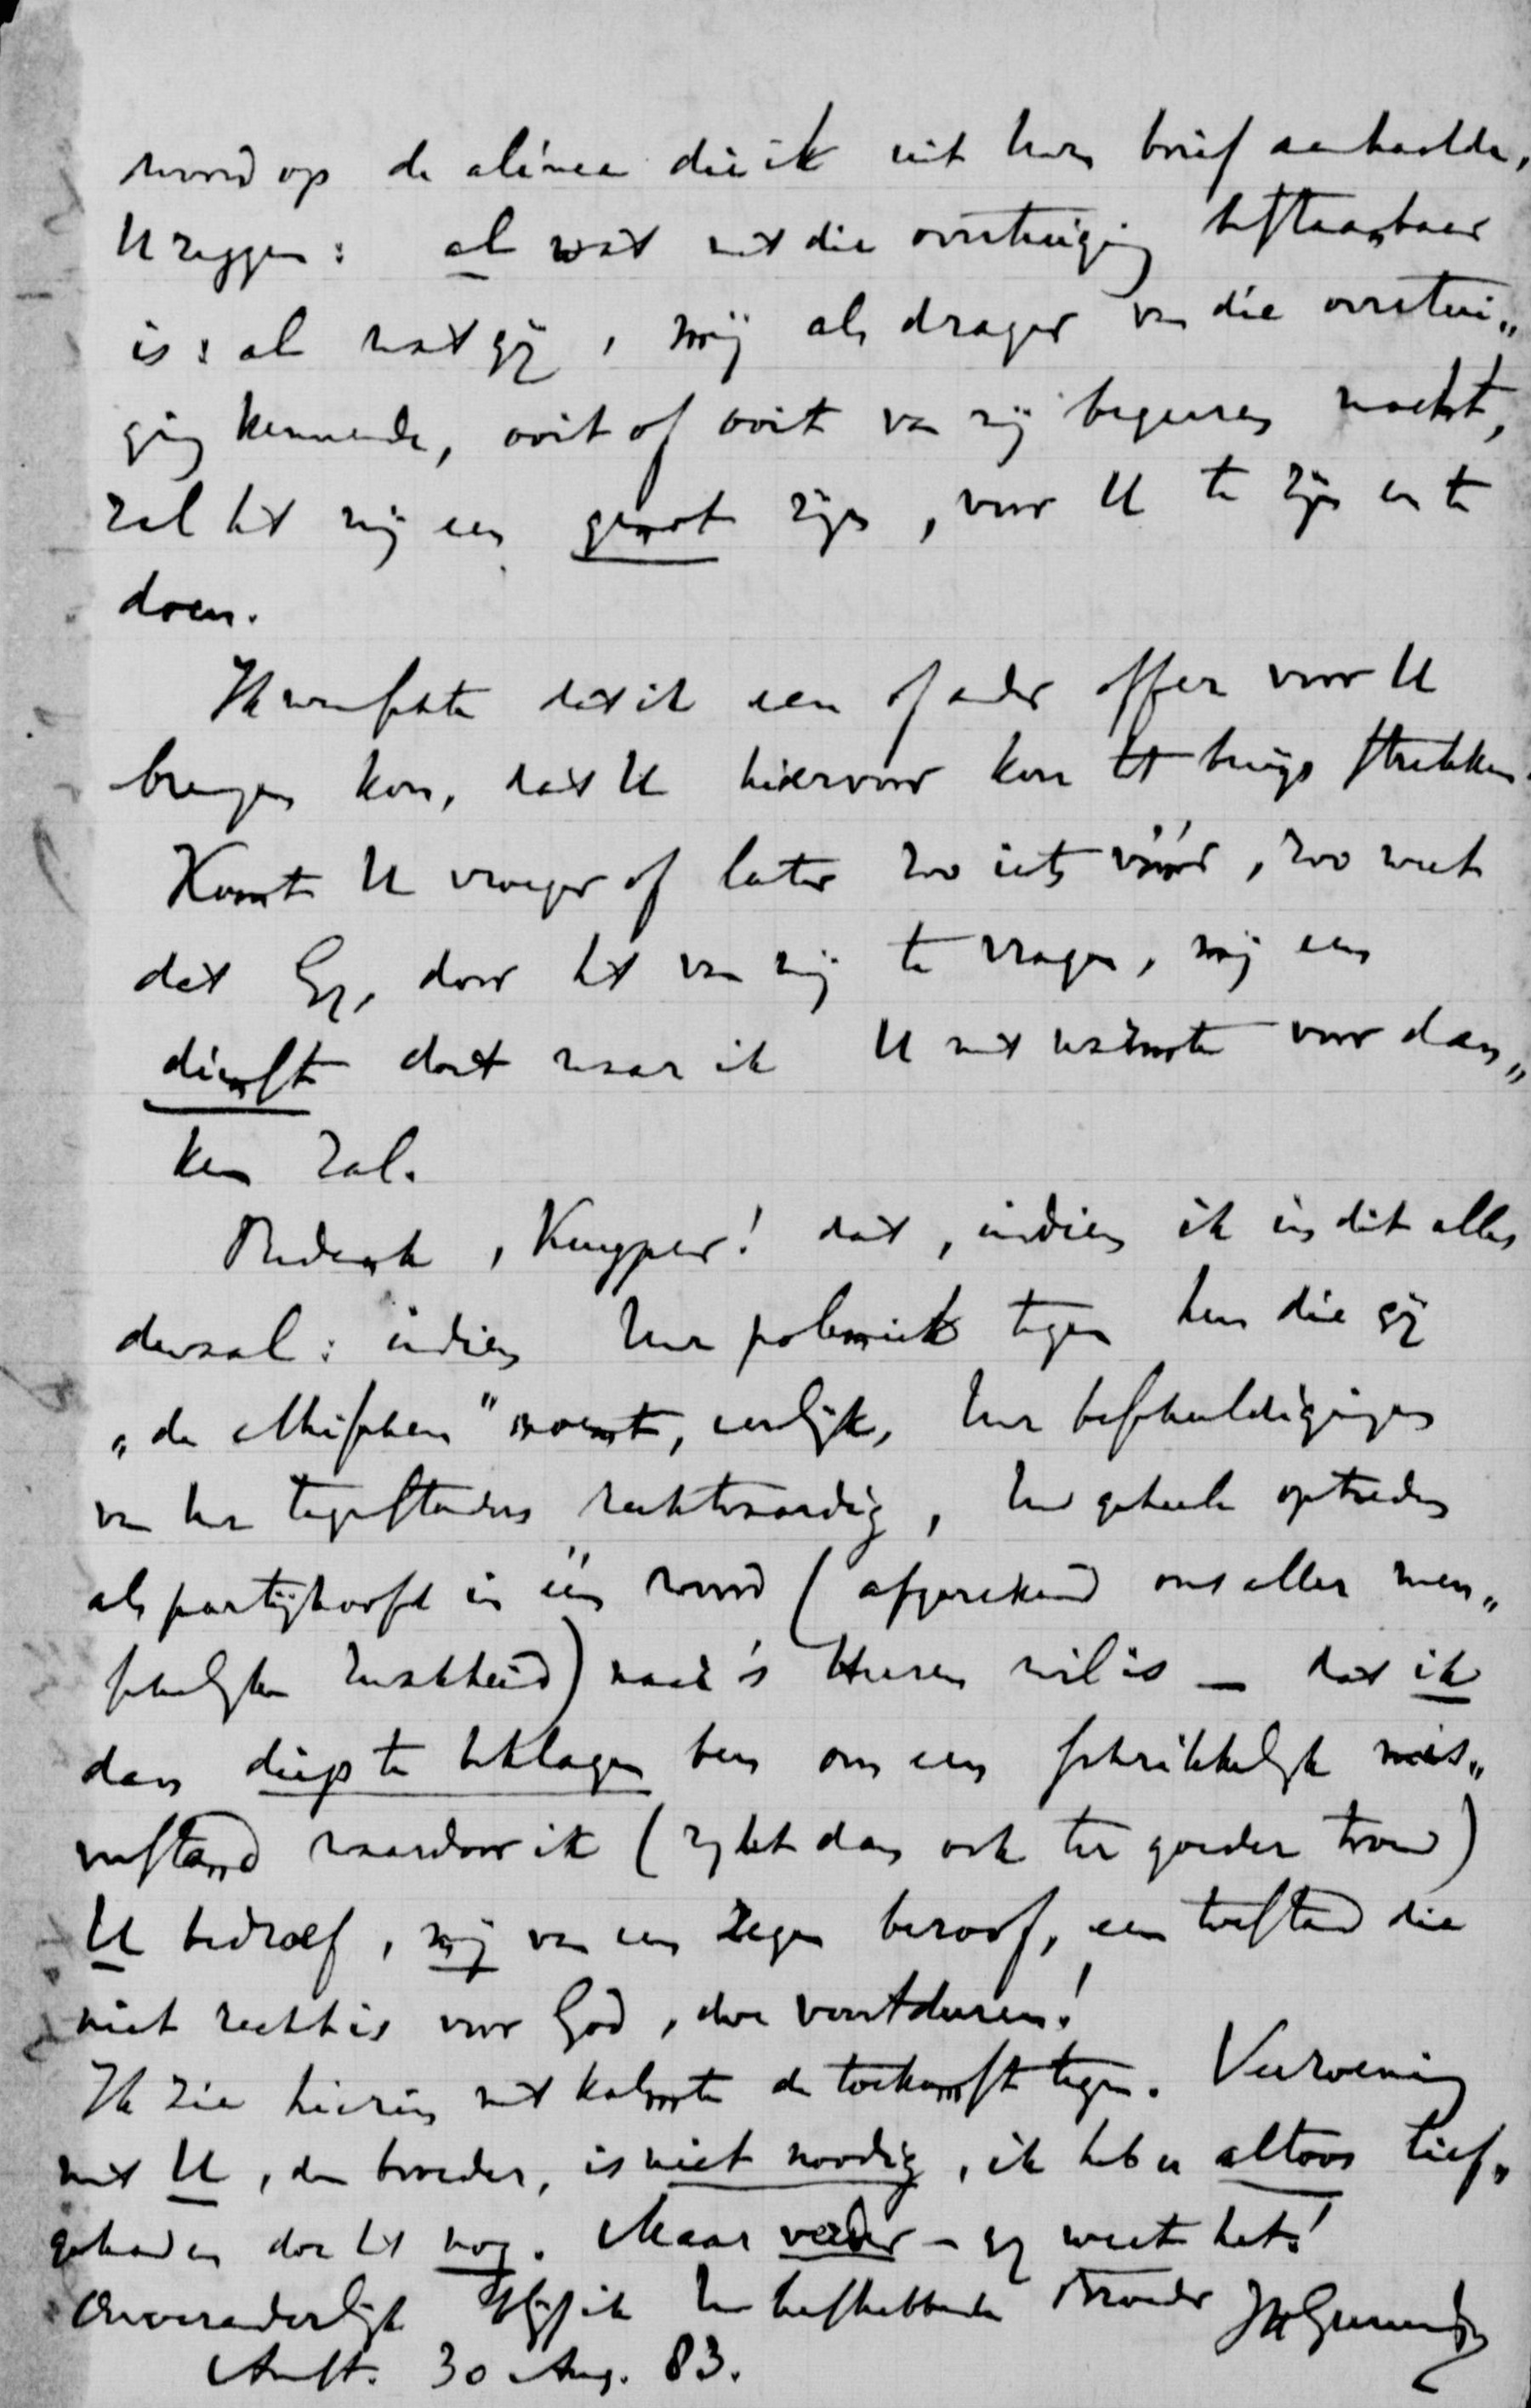 woord op de alinea die ik uit Uwen brief aanhaalde,
U zeggen: al wat met die overtuiging bestaanbaar
is: al wat gij, mij als drager van die overtui„
ging kennende, ooit of ooit van mij begeeren mocht,
zal het mij een genot zijn, voor U te zijn en te
doen.
Ik wenschte dat ik een of ander offer voor U
brengen kon, dat U hiervoor kon tot bewijs strekken.
Komt U vroeger of later zoo iets vóór, zoo weet
dat Gij, door het van mij te vragen, mij een
dienst doet waar ik U met warmte voor dan„
ken zal.
Bedenk, Kuyper! dat, indien ik in dit alles
dwaal: indien Uw polemiek tegen hen die gij
„de ethischen" noemt, eerlijk, Uw beschuldigingen
van Uw tegenstanders rechtvaardig, Uw geheele optreden
als partijhoofd in één woord (afgerekend ons aller men„
schelijke zwakheid) naar 's Heeren wil is — dat ik
dan diep te beklagen ben om een schrikkelijk mis„
verstand waardoor ik (zij het dan ook ter goeder trouw)
U bedroef, mij van een zegen beroof, een toestand die
niet recht is voor God, doe voortduren!
Ik zie hierin met kalmte de toekomst tegen. Verzoening
met U, den broeder, is niet noodig, ik heb u altoos lief„
gehad en doe het nog. Maar verder – gij weet het!
Onveranderlijk blijf ik Uw liefhebbende Broeder JHGunning
Amst. 30 Aug. 83.